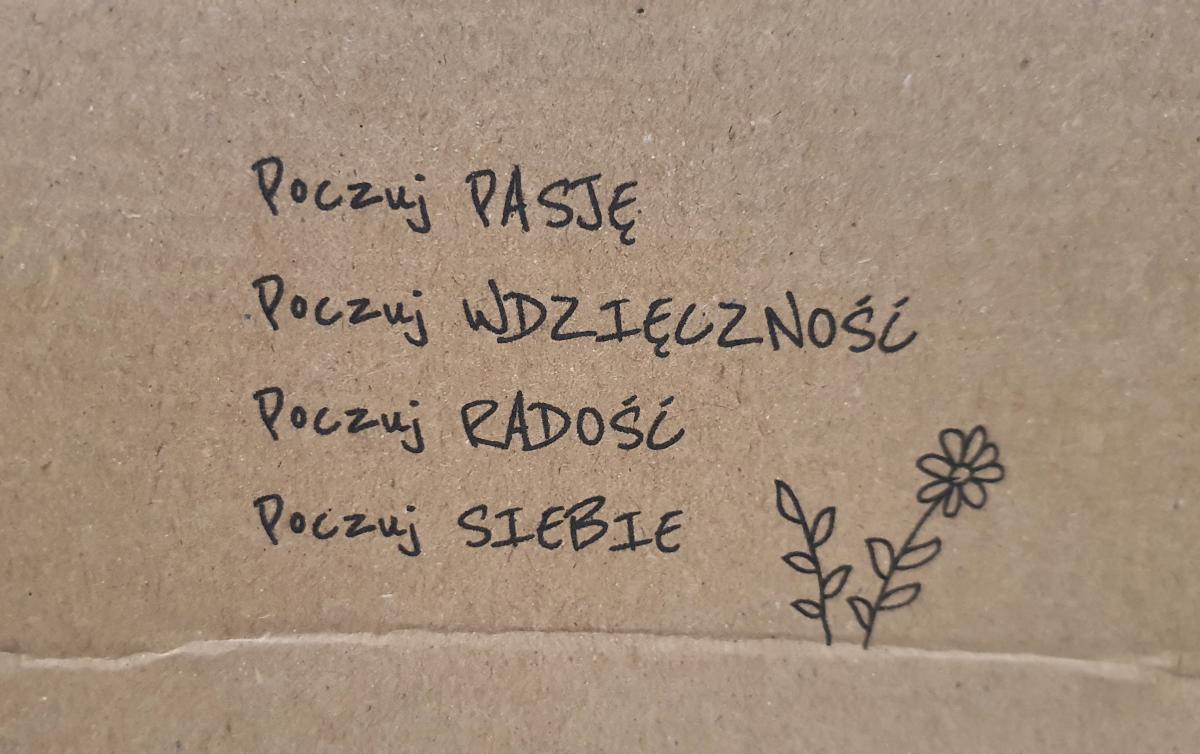 Poczuj PASJĘ
Poczuj WDZIĘCZNOŚĆ
Poczuj RADOŚĆ
Poczuj SIEBIE